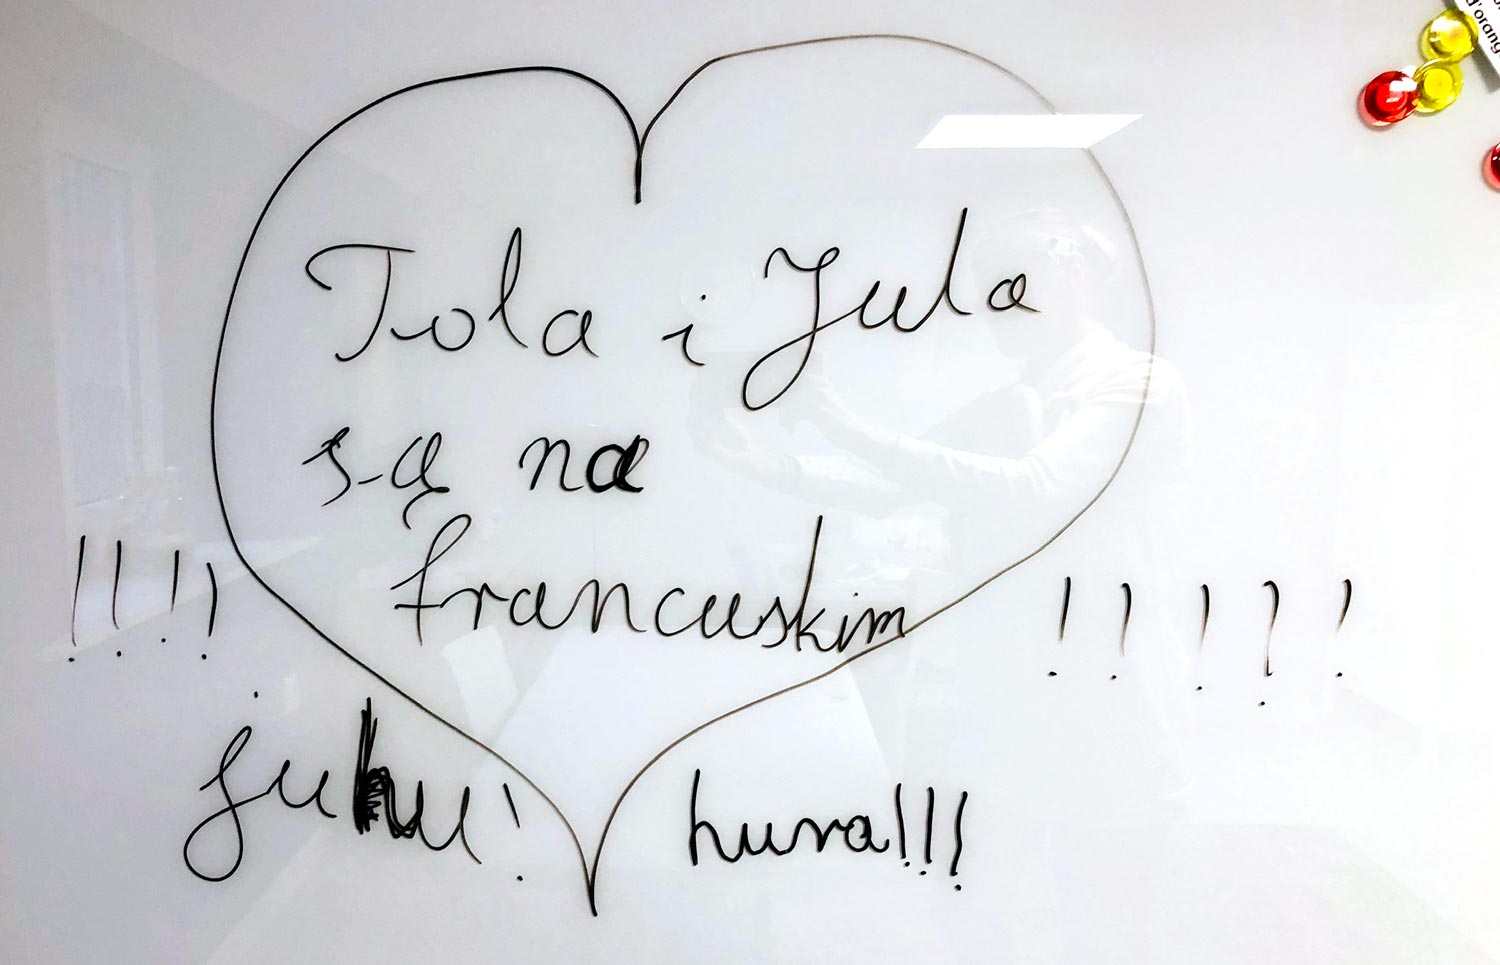 d'orang
Tola i Jula
są na
!!!! francuskim !!!!!
juhu! hura!!!